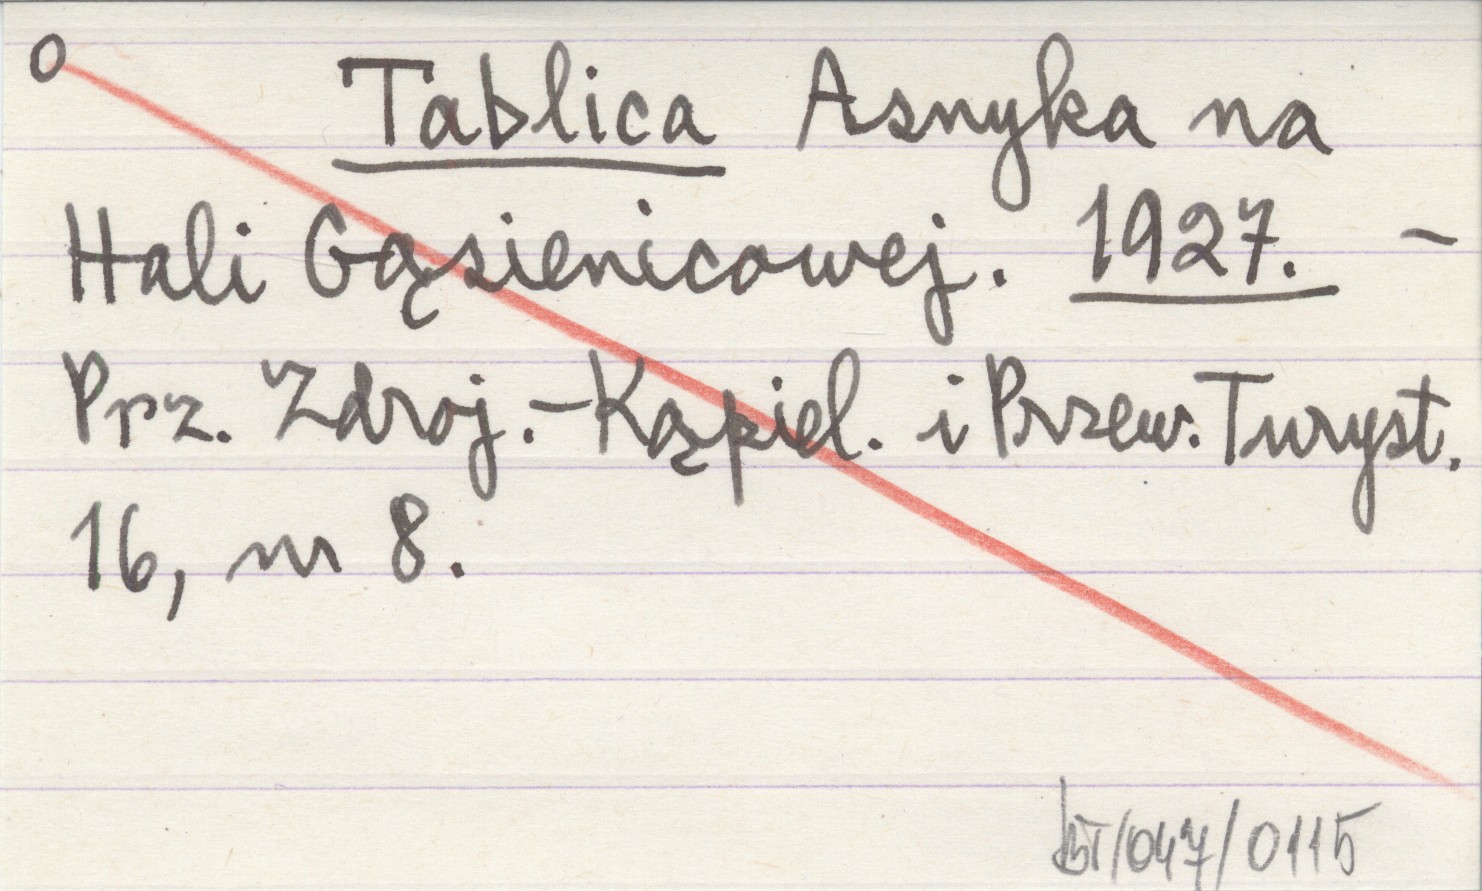 O
Tablica Asnyka na
Hali Gąsienicowej. 1927. -
Prz. Zdroj.-Kąpiel. i Przew. Turyst.
16, nr 8.
BT/047/0115